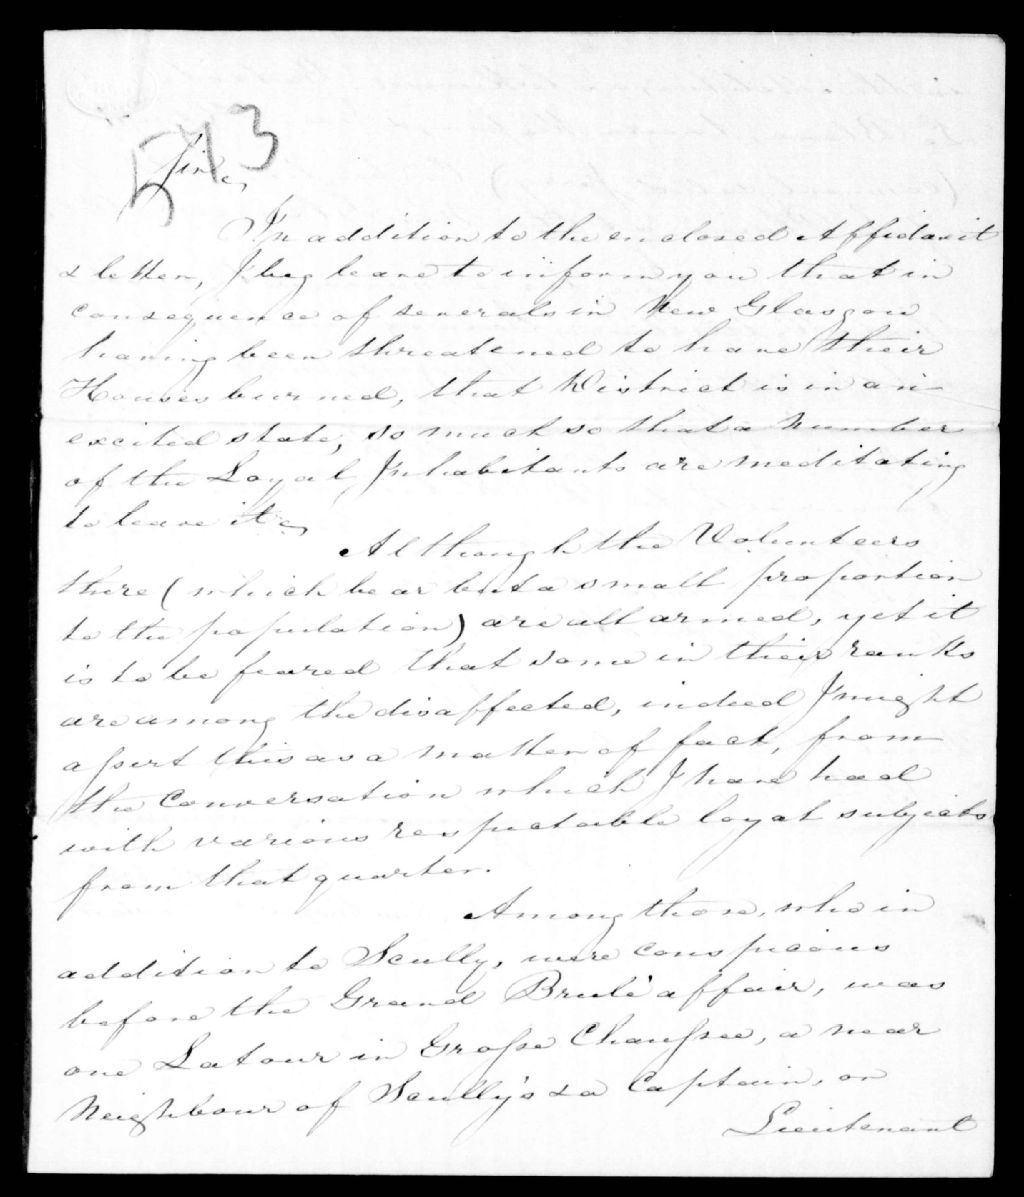 573
Sir,
In addition to the enclosed Affidavit
& letter, I beg leave to inform you that in
consequence of severals in New Glasgow
having been threatened to have their
Houses burned, that District is in an
excited state, so much so that a Number
of the Loyal Inhabitants are meditating
to leave it,
Although the Volunteers
there (which bear but a small proportion
to the population) are all armed, yet it
is to be feared that some in their ranks
are among the disaffected, indeed I might
assert this as a matter of fact, from
the Conversation which I have had
with various respectable loyal subjects
from that quarter.
Among those, who in
addition to Scully, were conspicious
before the Grand Brulé affair, was
one Latour in Grosse Chaussee, a near
Neighbour of Scully's & a Captain, or
Lieutenant